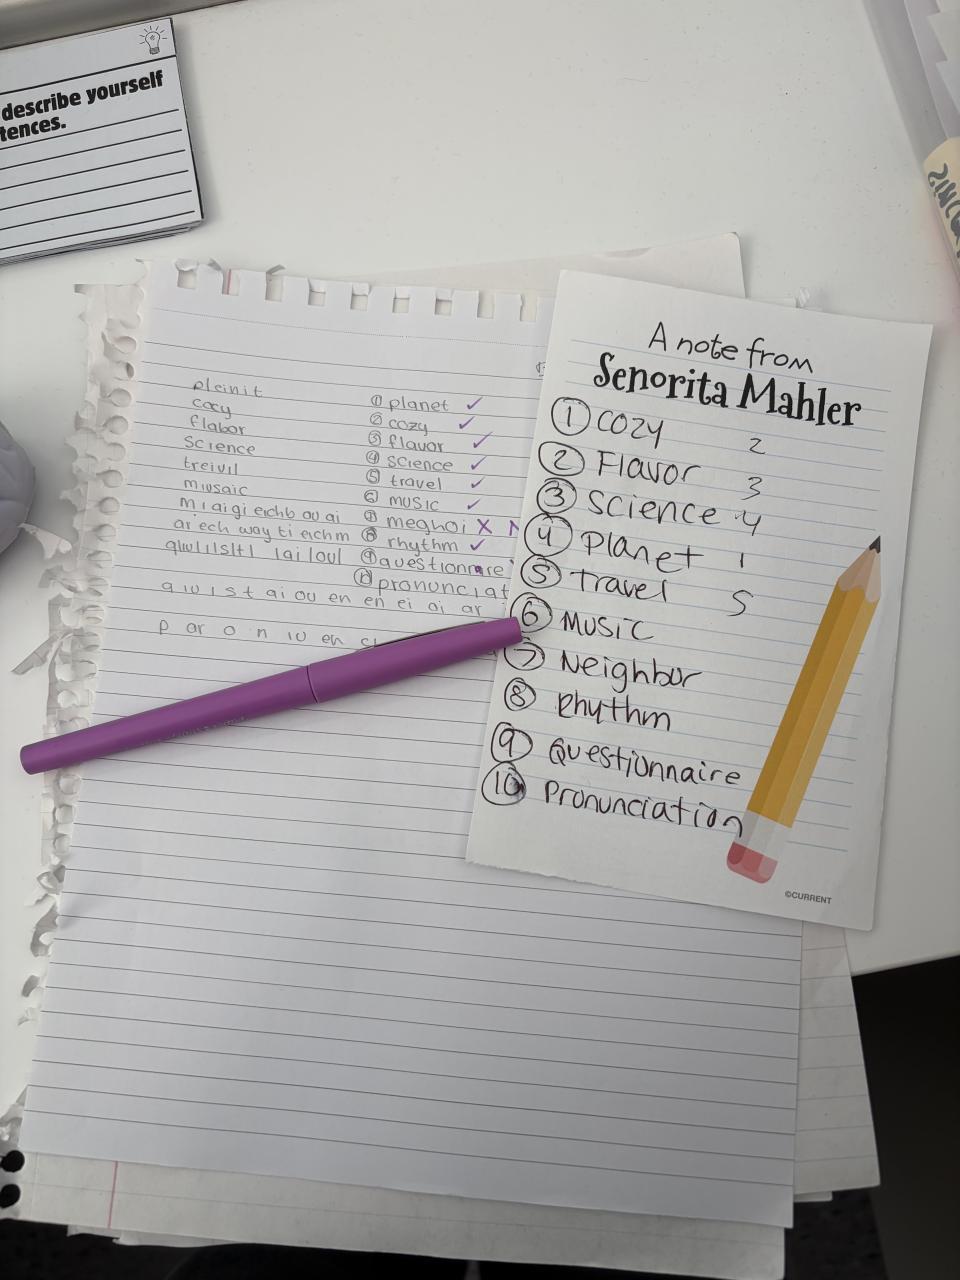 describe yourself
tences.
pleinit
cocy
flabor
science
treivil
miusaic
miaigi eichb ou ai
ar ech way ti eichm
qiuiisiti iaiioui
qiuist ai ou en en ei oi ar
p ar o n iu en
① planet ✓
② cozy ✓
③ flavor ✓
④ science ✓
⑤ travel ✓
⑥ music ✓
⑦ meghoi X N
⑧ rhythm ✓
⑨ questionnare
⑩ pronunciat
A note from
Senorita Mahler
① COZY 2
② Flavor 3
③ Science 4
④ Planet 1
⑤ travel 5
⑥ Music
⑦ Neighbor
⑧ Rhythm
⑨ Questionnaire
⑩ Pronunciation
©CURRENT